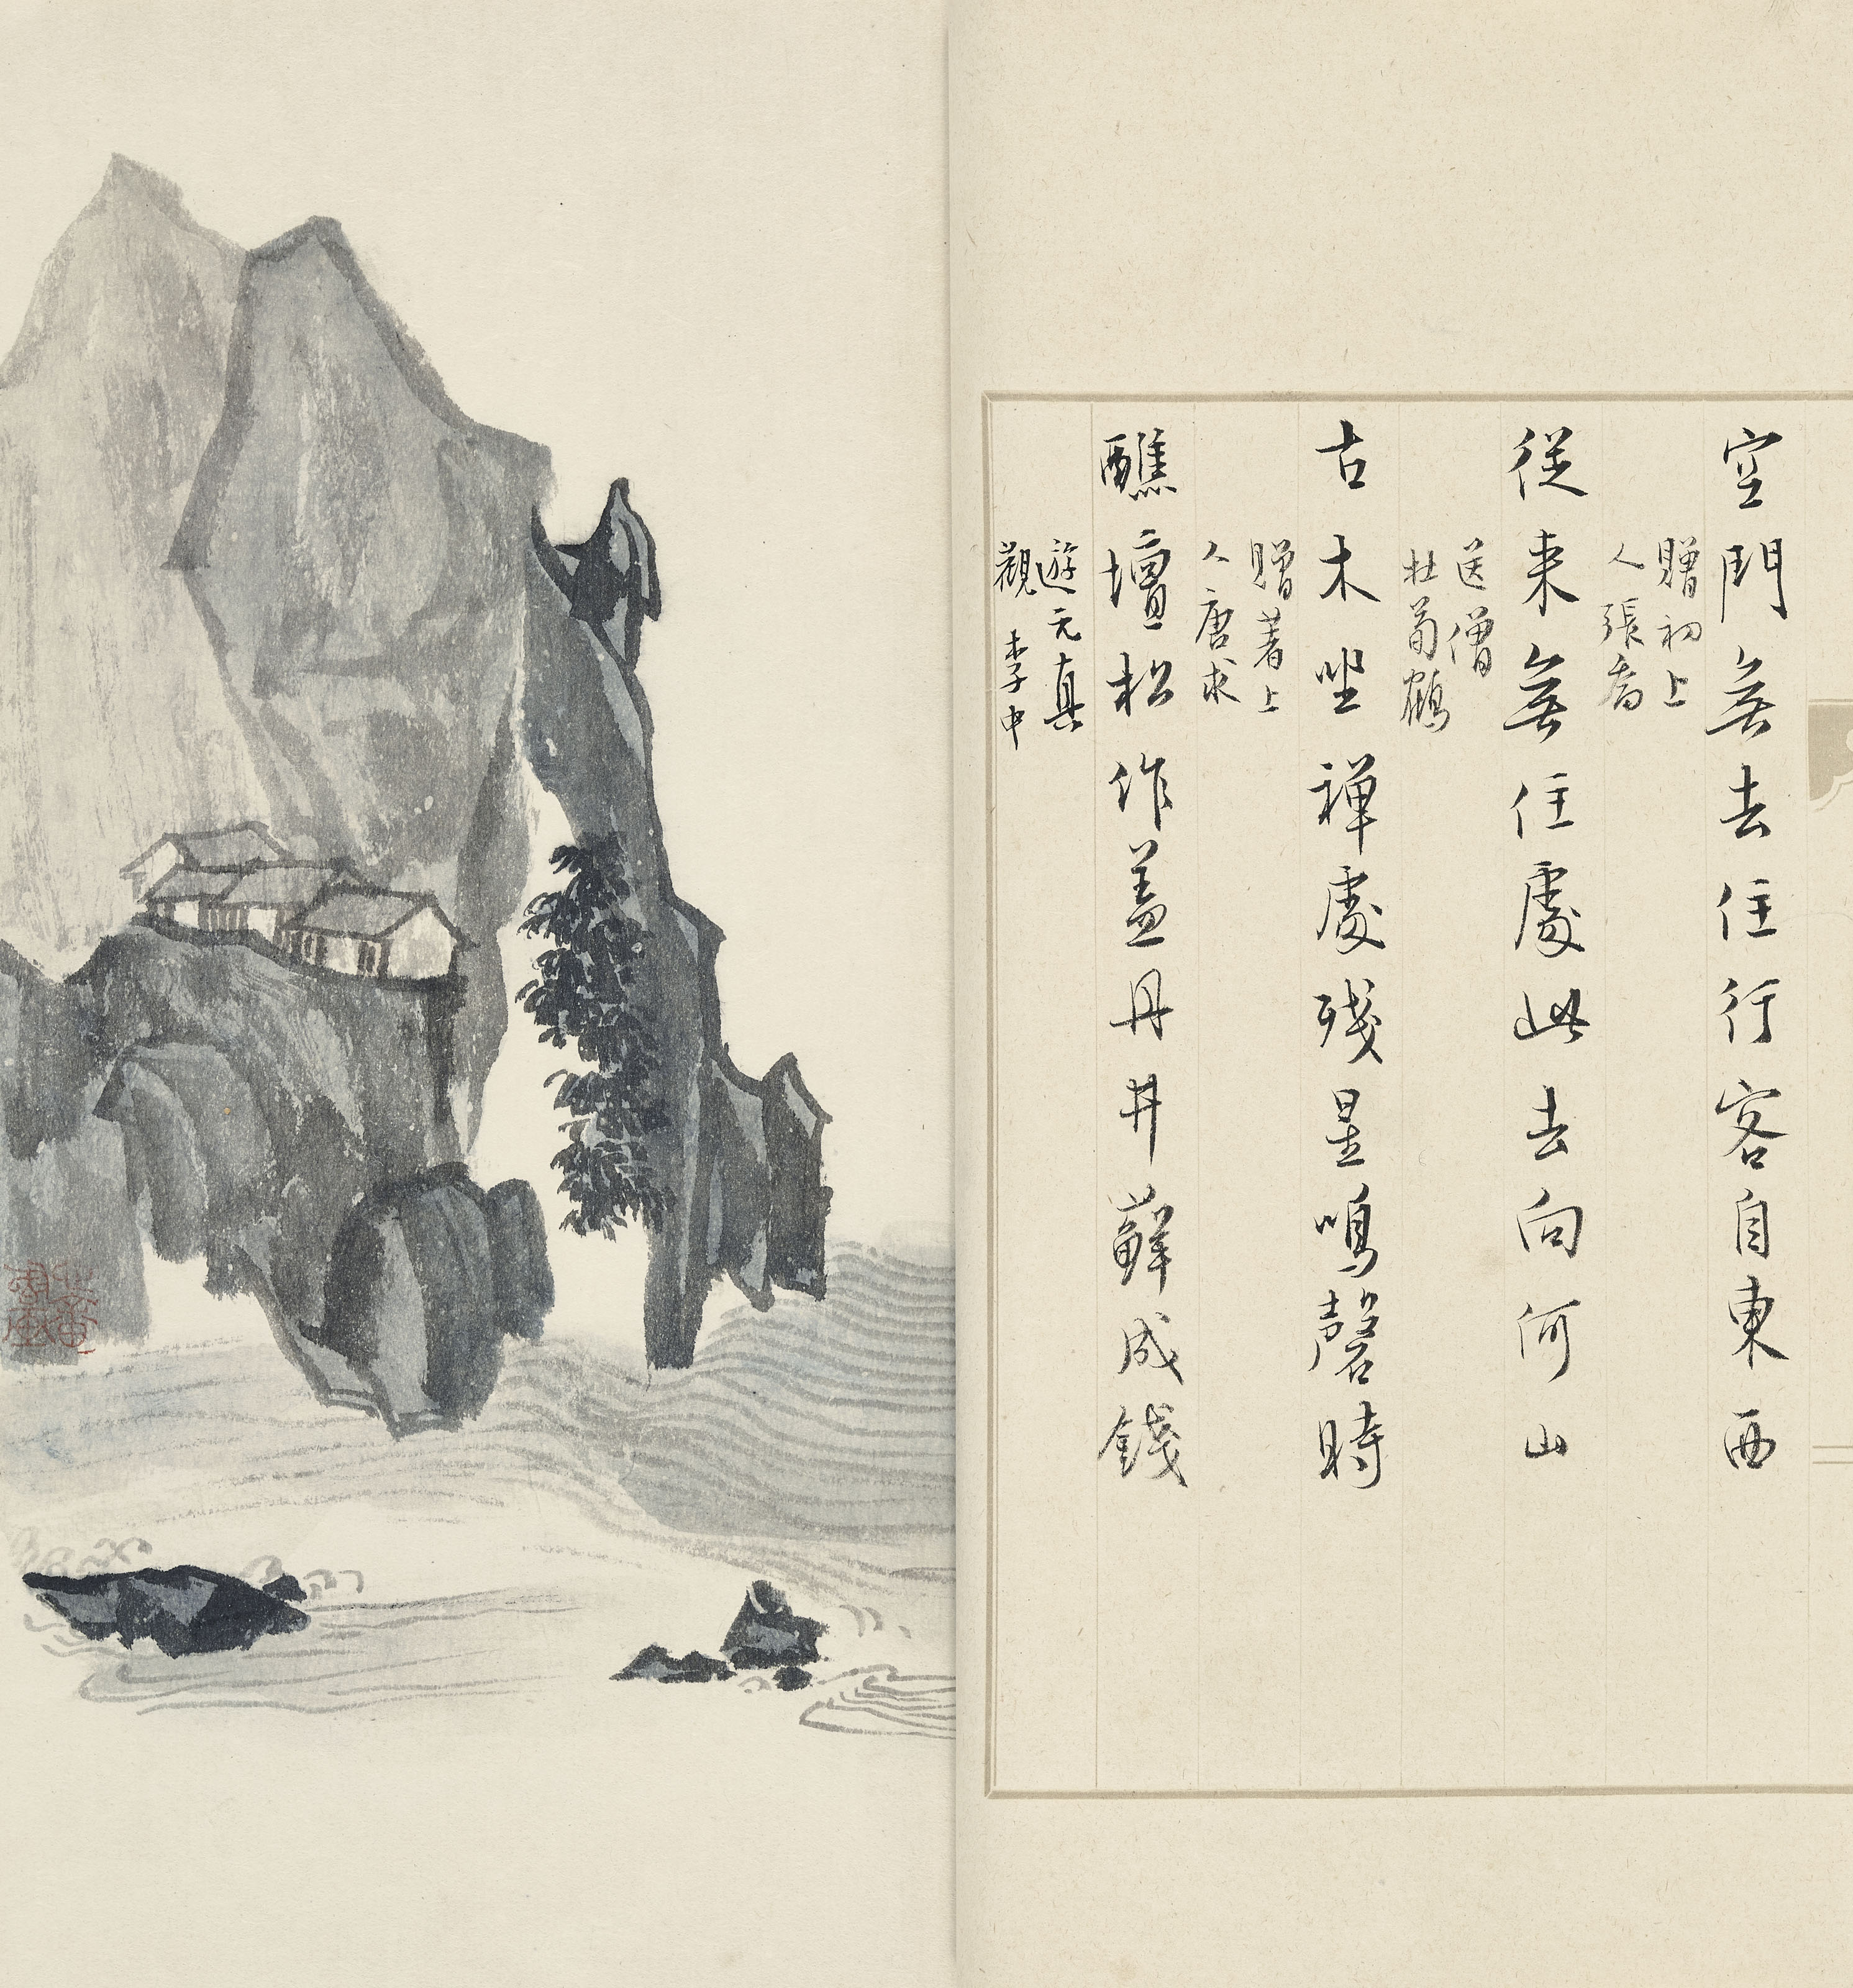 空門無去住行客自東西
贈初上
人張喬
從來無住處此去向何山
送僧
杜荀鶴
古木坐禪處殘星鳴磬時
贈著上
人唐求
醮壇松作蓋丹井蘚成錢
遊元真
觀 李中